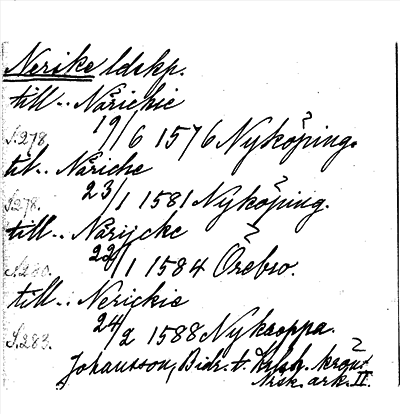 Nerike ldskp.
till.. Närickie
S.278 19/6 1576 Nyköping.
til.. Näriche
S.278. 23/1 1581 Nyköping.
till.. Närijcke
S.280. 22/1 1584 Örebro.
till.. Nerickie
S.283. 24/2 1588 Nykroppa.
Johansson, Bidr. t.
ark. II.